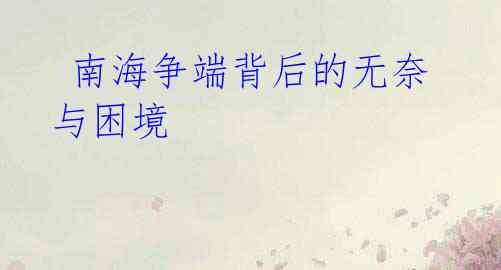 南海争端背后的无奈
与困境